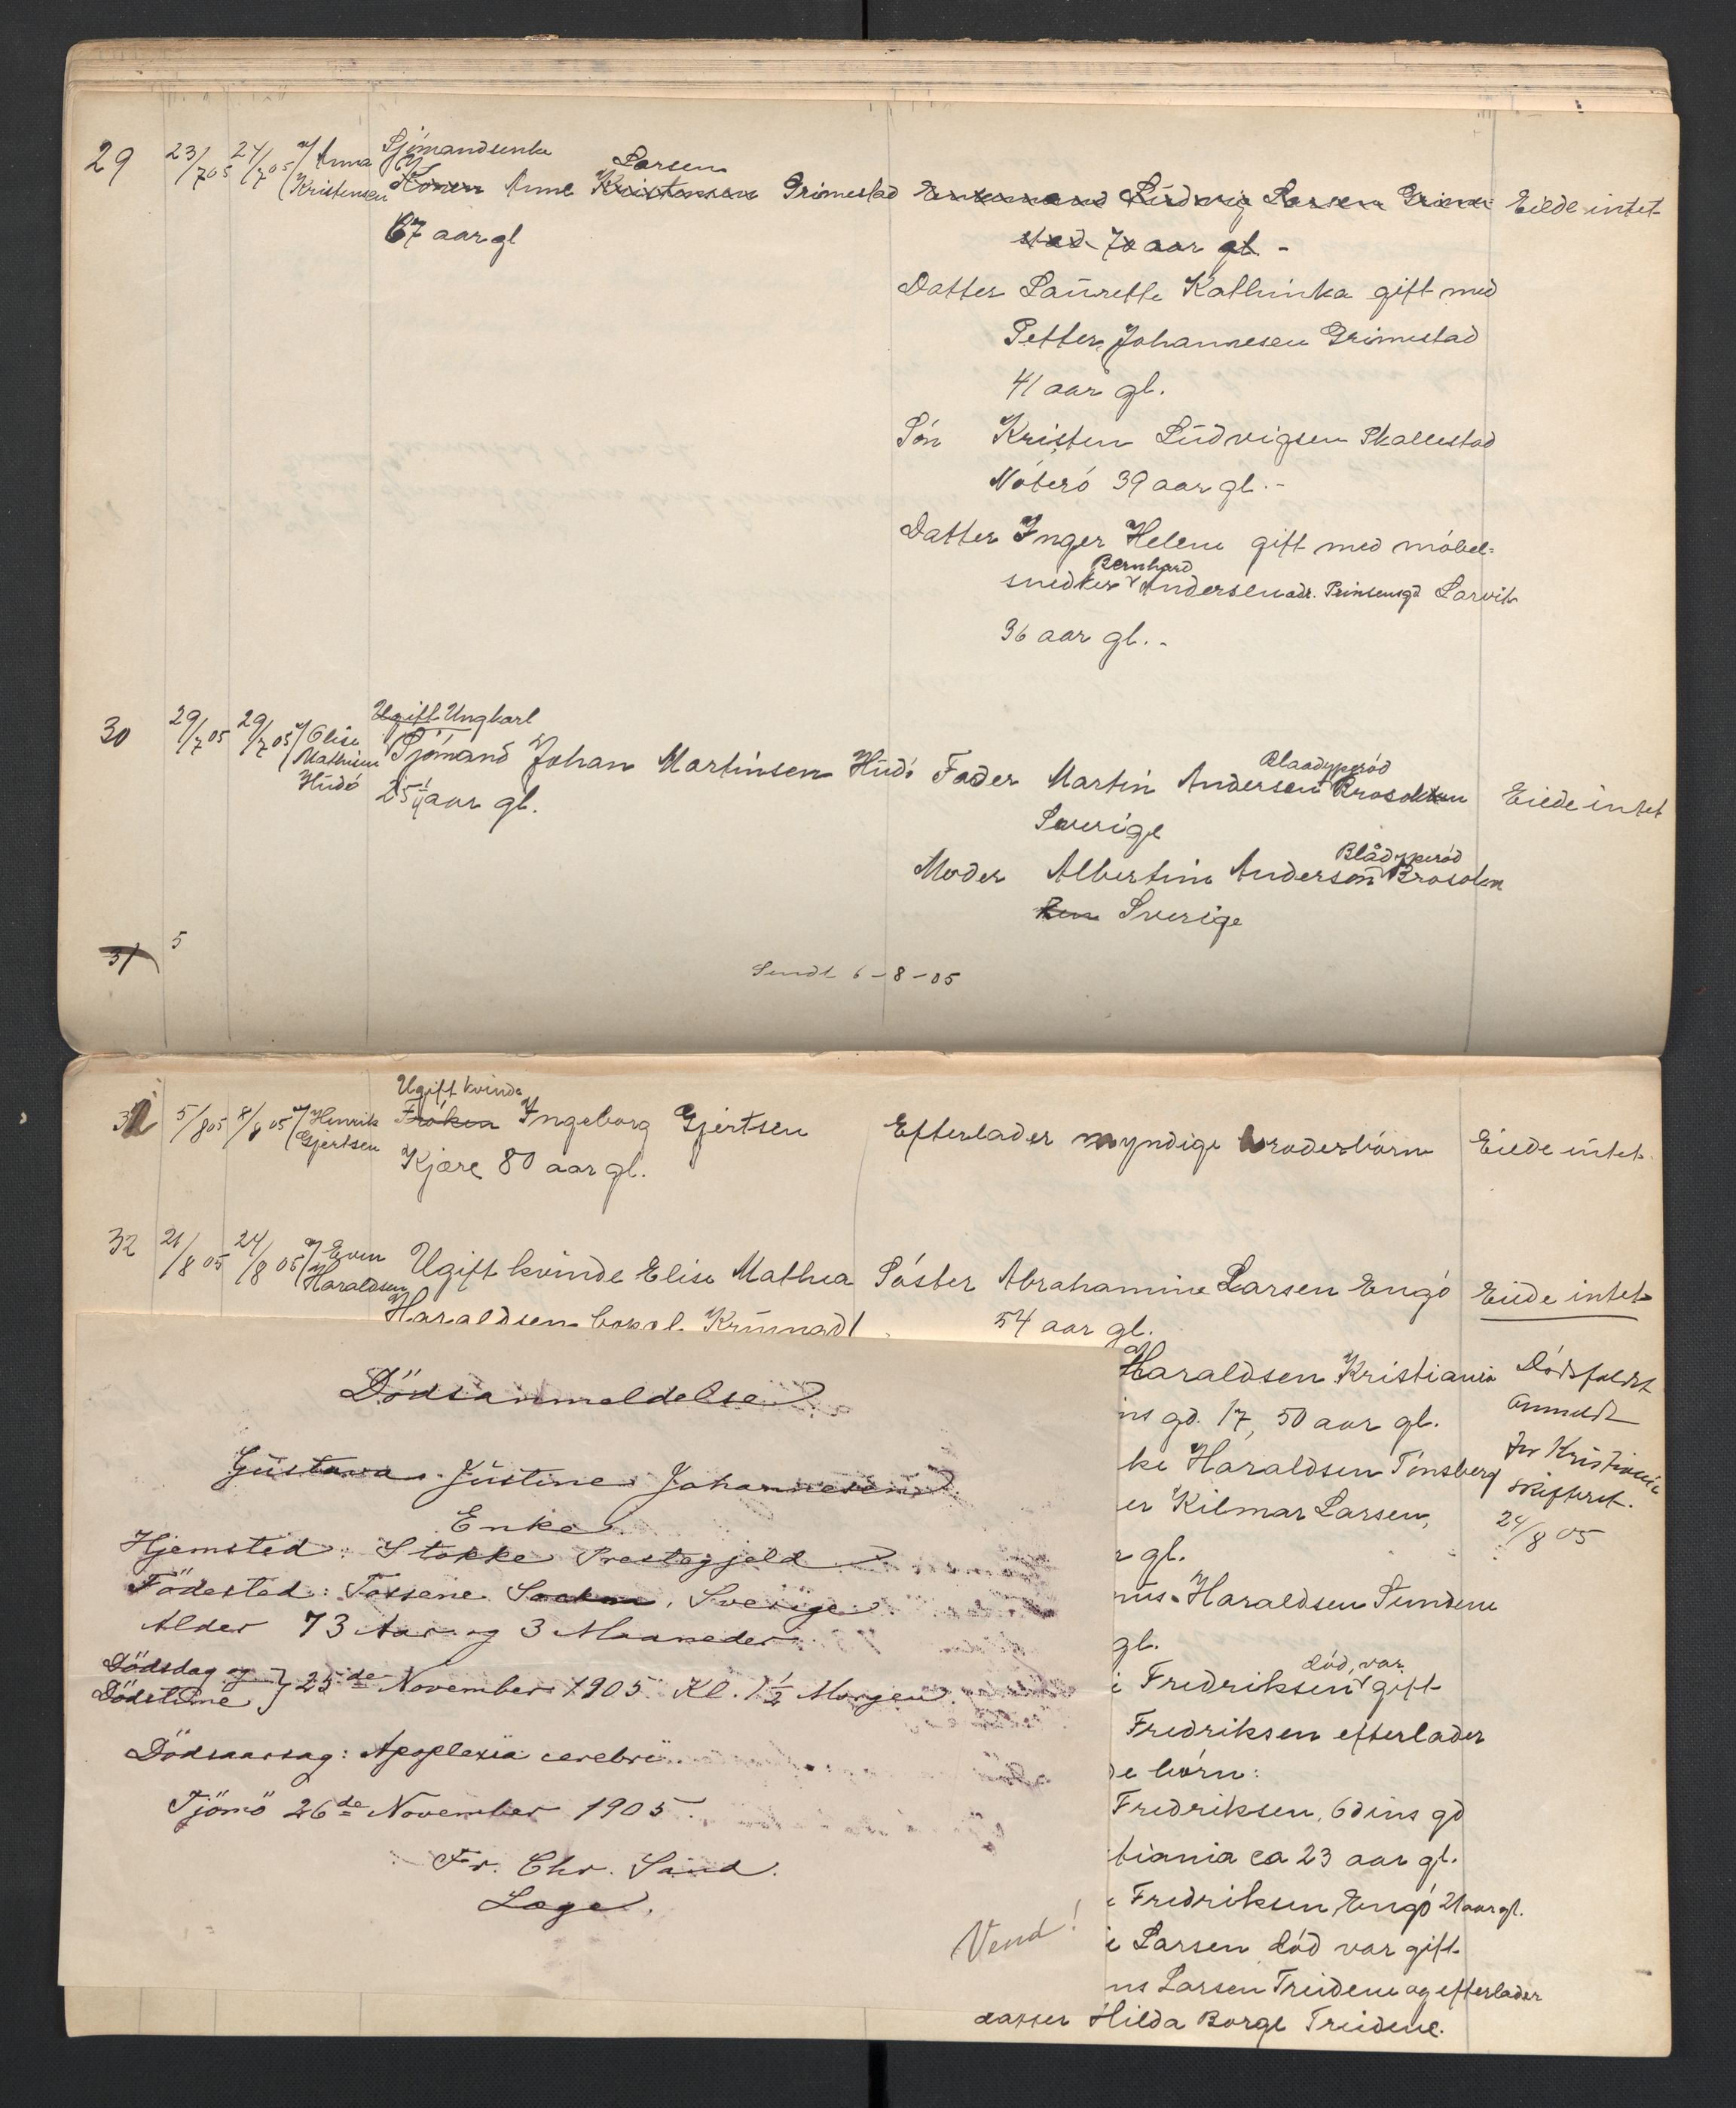 29 23/7 05 24/7 05 v/ Anna Kristensen
Sjömandsenke
Konen Anne Kristensen Larsen Grimestad
67 aar gl
Enkemand Ludvig Larsen Grime-
stad 70 aar gl. -
Eiede intet
Datter Laurette Kathinka gift med
Petter Johannesen Grimestad
41 aar gl.
Sön Kristen Ludvigsen Skallestad
Nöterö 39 aar gl. -
Datter Inger Helene gift med möbel-
snedker Bernhard Andersen adr. Prinsensgd Larvik
36 aar gl. -
30 29/7 05 29/7 05 v/ Elise Mathisen Hudö
Ugift Ungkarl
Sjömand Johan Martinsen Hudö
25 1/4 aar gl.
Fader Martin Andersen
Sverige
Eiede intet
Moder Albertine Anderson
Sverige
31 5
Sendt 6-8-05
31 5/8 05 8/8 05 v/ Henrik Gjertsen
Ugift kvinde
Fröken Ingeborg Gjertsen
Kjære 80 aar gl.
Efterlader myndige broderbörn
Eiede intet
32 21/8 05 24/8 05 v/ Even Haraldsen
Ugift kvinde Elise Mathea
Haraldsen
Söster Abrahamine Larsen Engö
54 aar gl.
Eiede intet
Haraldsen Kristiania
ns gd. 17, 50 aar gl.
ke Haraldsen Tönsberg
er Kilmar Larsen,
r gl.
nus Haraldsen Sundene
gl.
i Fredriksen död, var gift
Fredriksen efterlader
de börn:
Fredriksen, Odins gd
tiania ca 23 aar gl.
e Fredriksen Engö 21 aar gl.
e Larsen död var gift
ns Larsen Treidene og efterlader
datter Hilda Borge Treidene.
Dödsfaldet
anmeldt
for Kristiania
skifteret.
24/8 05
Vend!
Dödsanmeldelse
Gustava Justine Johannesen
Enke
Hjemsted: Stokke Prestegjeld
Födested: Tossene Socken, Sverige
Alder 73 Aar og 3 Maaneder
Dödsdag og
Dödstime } 25de November 1905. Kl. 1 1/2 Morgen.
Dödsaarsag: Apoplexia cerebri.
Tjömö 26de November 1905.
Fr. Chr. Sand.
Læge.